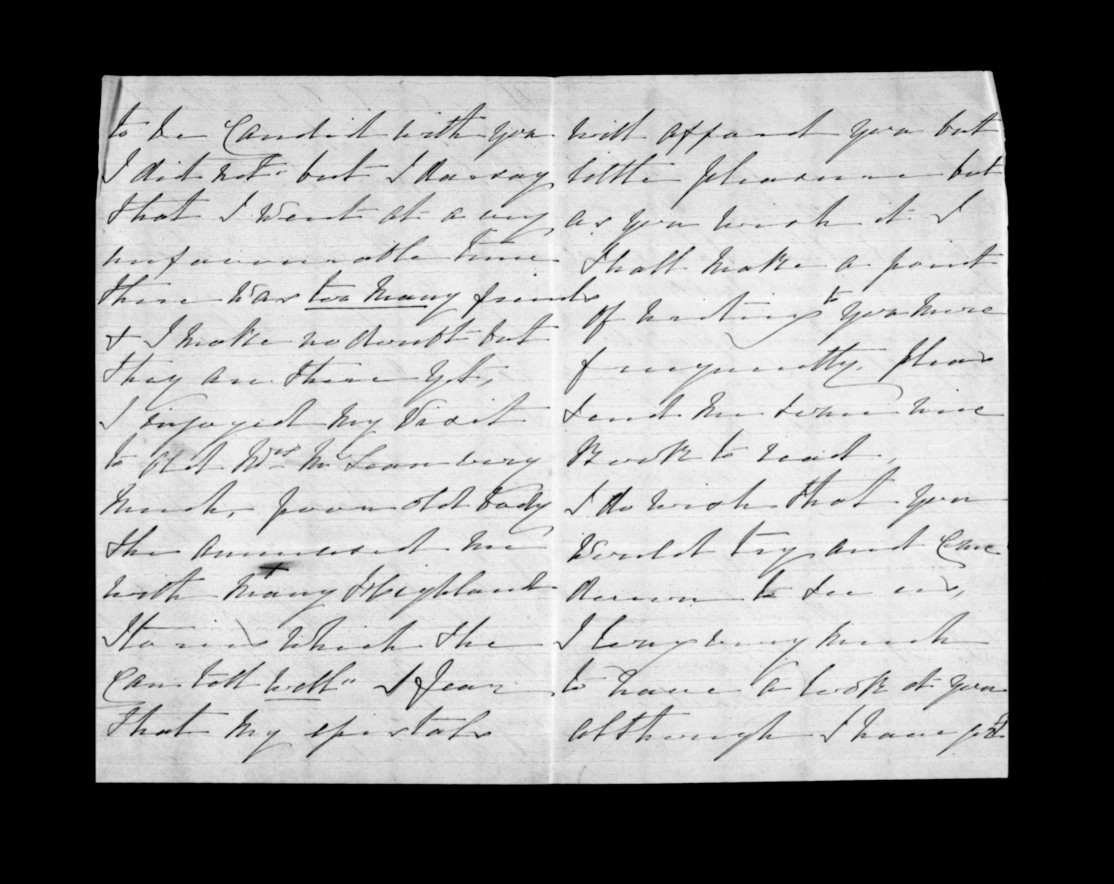 to be Candid with you
I did not" but I dare say
that I went at a very
unfavourable time
there was too many friends
& I make no doubt but
they are there yet,
I enjoyed my visit
to Old Mrs McLean very
much, poor old body
she ammused me
with many Highland
Stories which she
Can tell well" I fear
that my epistals
will afford you but
little pleasure but
as you wish it I
shall make a point
of writing to you more
frequently. Pleas
send me some nice
Book to read,
I do wish that you
Would try and Come
down to see us,
I long very much
to have a look at you
although I have got